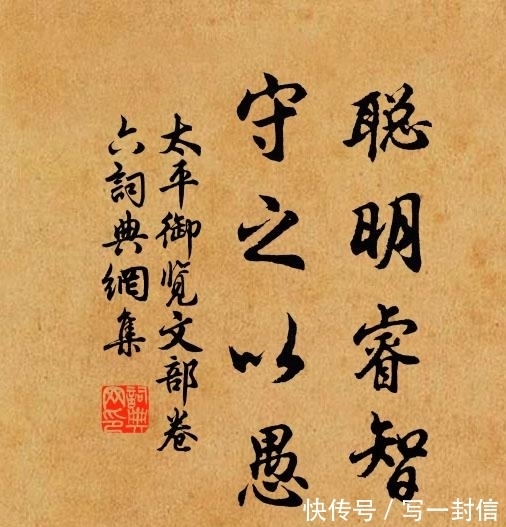 聪明睿智
守之以愚
太平御览文部卷
六詞典網集
詞典
网印
快传号 / 写一封信